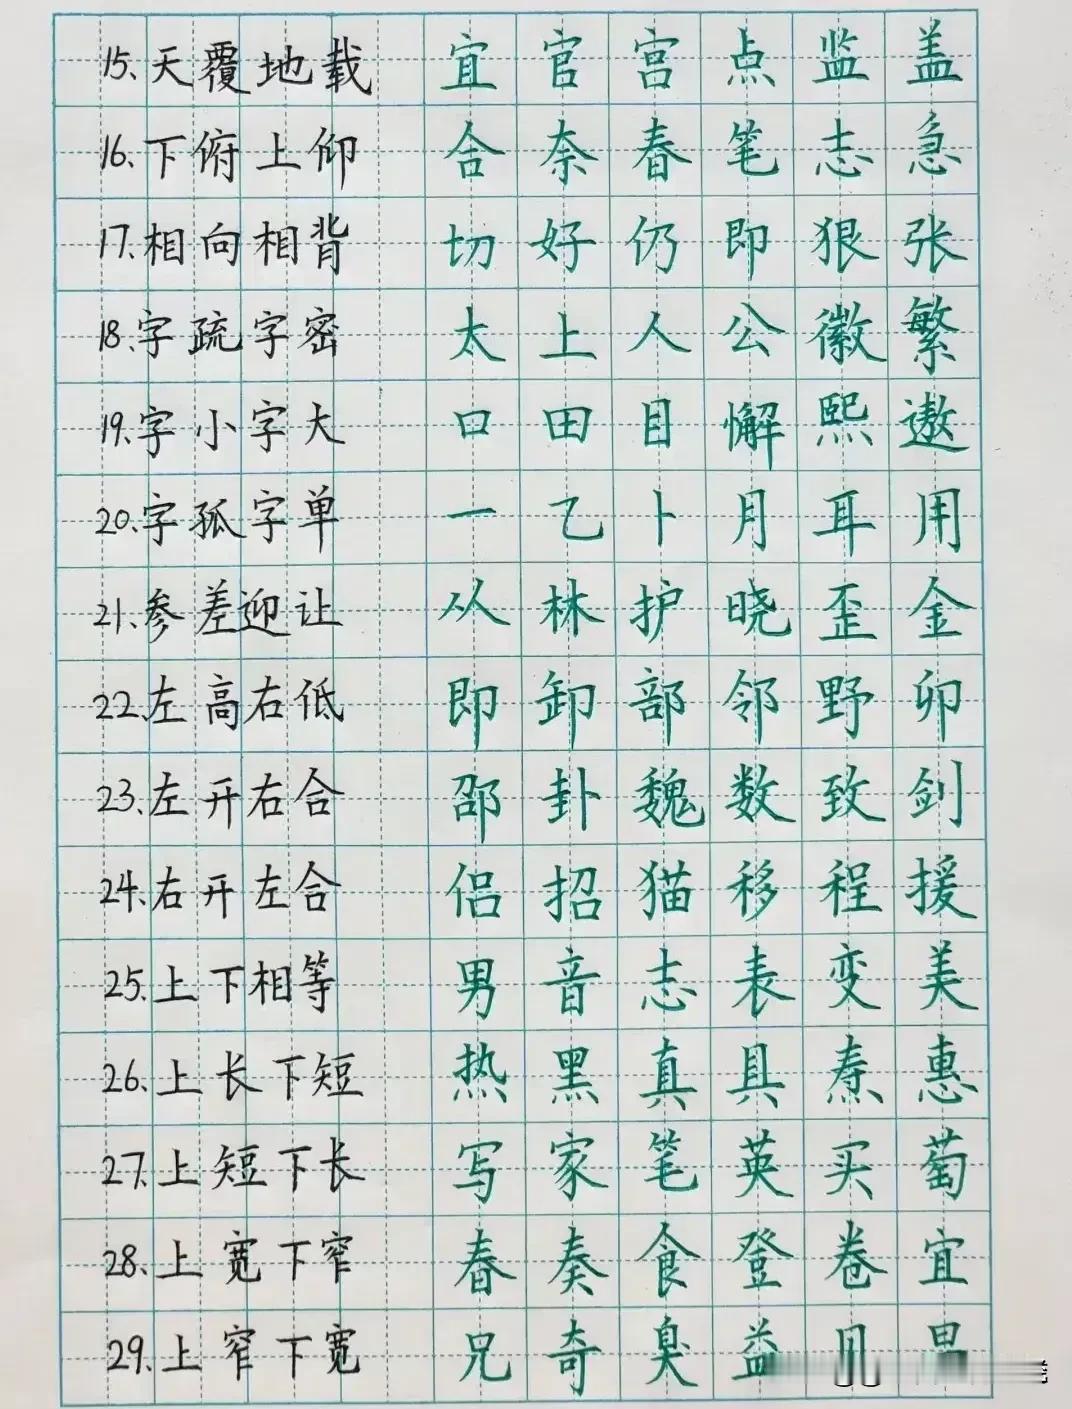 15.天覆地载 宜官宫点监盖
16.下俯上仰 合奈春笔志急
17.相向相背 切好仍即狠张
18.字疏字密 太上人公徽繁
19.字小字大 口田目懈熙遨
20.字孤字单 一乙卜月耳用
21.参差迎让 从林护晓歪金
22.左高右低 即卸部邻野卯
23.左开右合 邵卦魏数致剑
24.右开左合 侣招猫移程援
25.上下相等 男音志表变美
26.上长下短 热黑真具焘惠
27.上短下长 写家笔英买萄
28.上宽下窄 春奏食登卷宜
29.上窄下宽 兄奇臭益